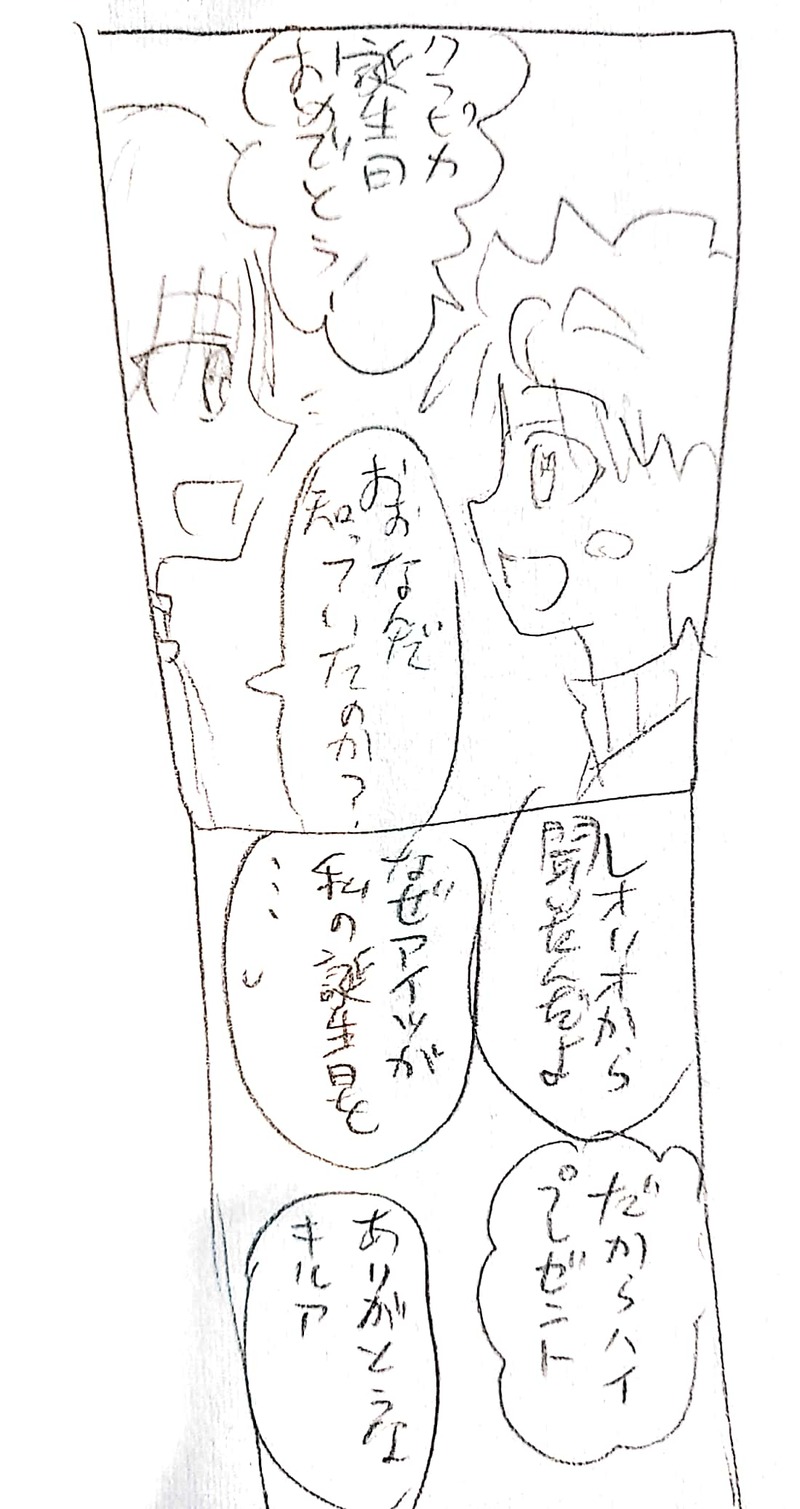 クラピカ
誕生日
おめでとう!
おおなんだ
知っていたのか?
レオリオから
聞きた
よ
なぜアイツが
私の誕生日を
…
だからハイ
プレゼント
ありがとうな
キルア